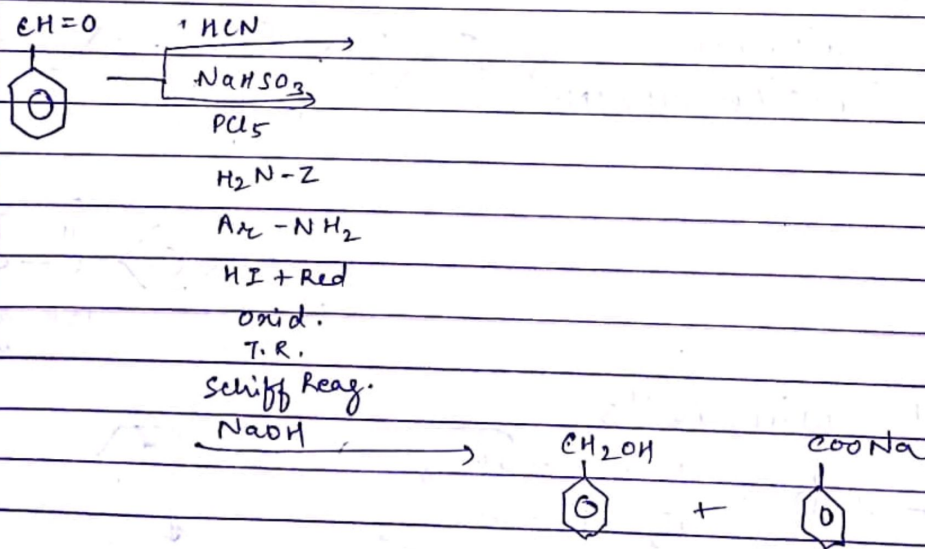 CH=O HCN
NaHSO3
PCl5
H2N-Z
Ar-NH2
HI + Red
oxid.
T.R.
Schiff Reag.
NaOH CH2OH COONa
+